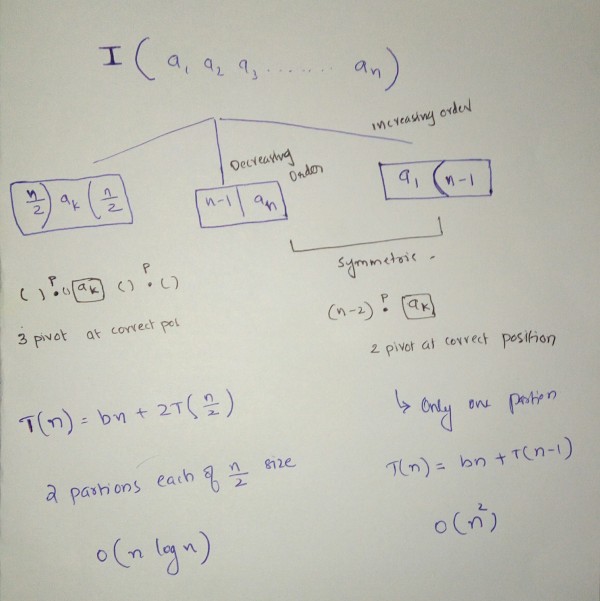 I ( a₁ a₂ a₃ ....... aₙ )
increasing order
Decreasing order
(n/2) aₖ (n/2)
n-1 | aₙ
a₁ (n-1
symmetric -
( ) P • ( ) aₖ ( ) P • ( )
(n-2) P • aₖ
3 pivot at correct pos
2 pivot at correct position
T(n) = bn + 2T(n/2)
↳ only one partion
2 partions each of n/2 size
T(n) = bn + T(n-1)
O(n log n)
O(n²)